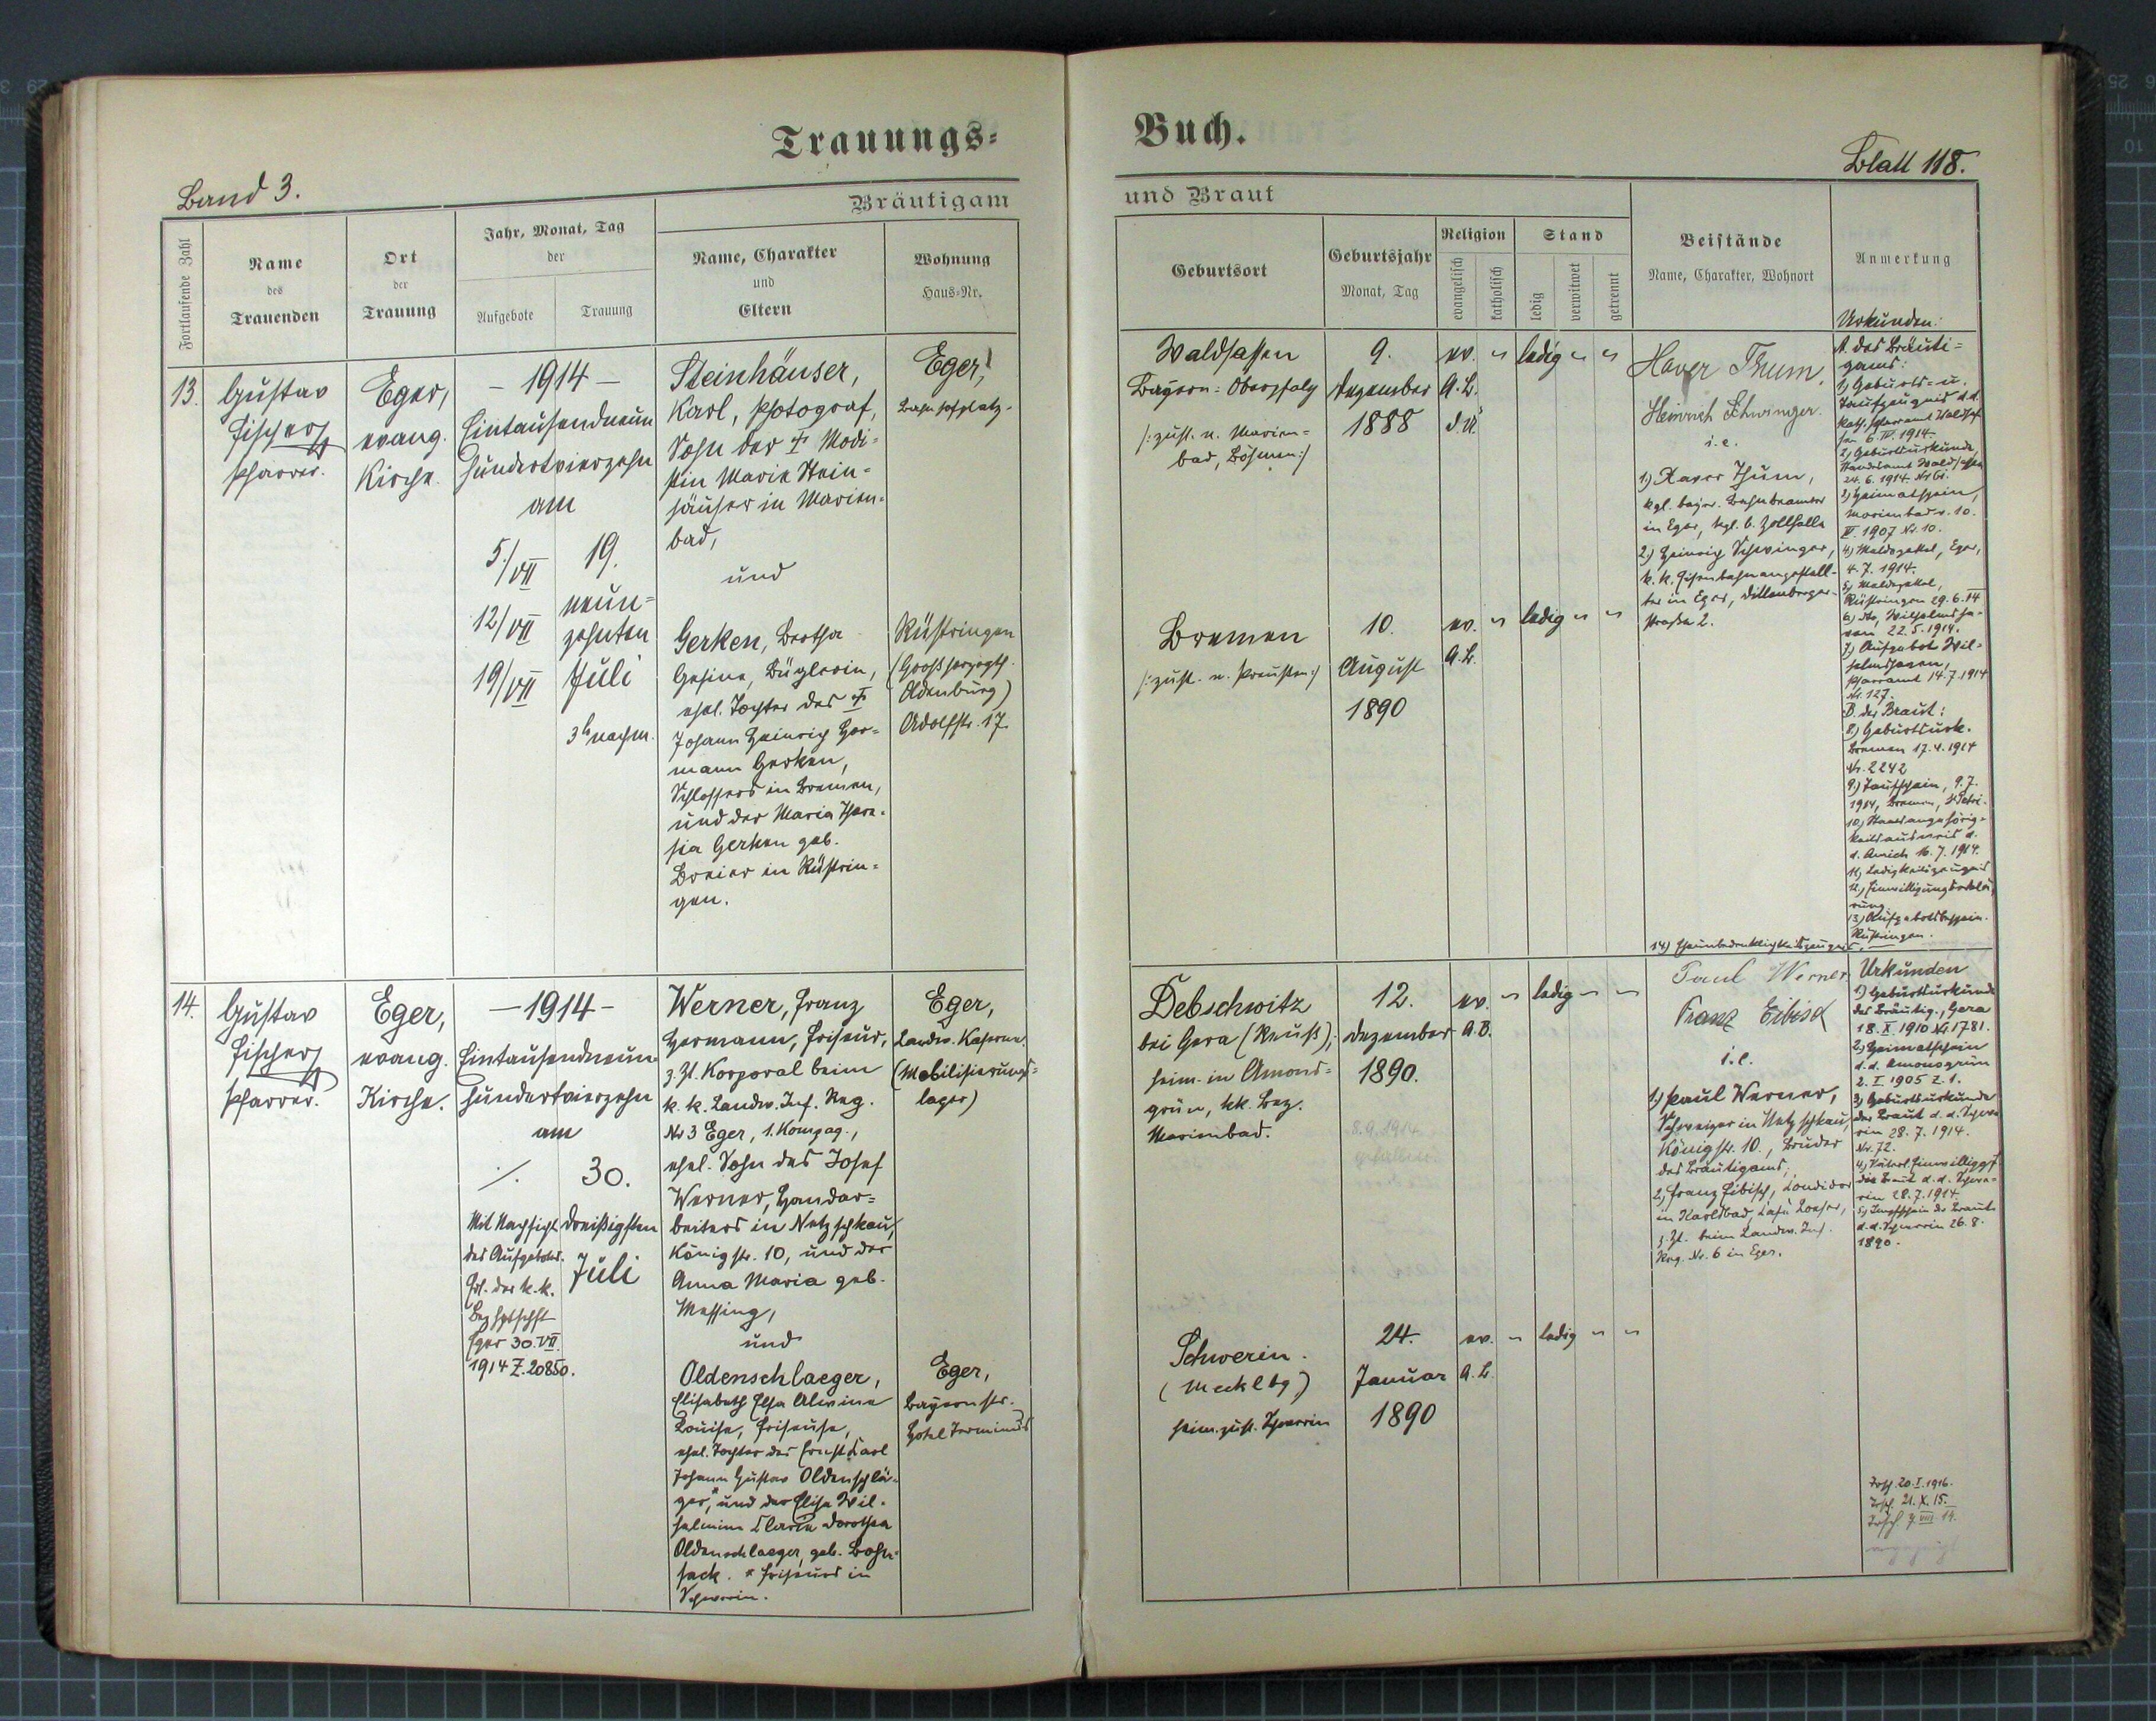 Trauungs-
Buch.
Band 3.
Blatt 118.
Bräutigam
und Braut
Fortlaufende Zahl
Name
des
Trauenden
Ort
der
Trauung
Jahr, Monat, Tag
der
Aufgebote
Trauung
Name, Charakter
und
Eltern
Wohnung
Haus-Nr.
Geburtsort
Geburtsjahr
Monat, Tag
Religion
evangelisch
katholisch
Stand
ledig
verwitwet
getrennt
Beistände
Name, Charakter, Wohnort
Anmerkung
Urkunden:
13.
Gustav
Fischer
Pfarrer.
Eger,
evang.
Kirche.
- 1914 -
Eintausendneun
hundertvierzehn
am
5./VII
12/VII
19/VII
19.
neun=
zehnten
Juli
3h nachm.
Steinhäuser,
Karl, Photograf,
Sohn der † Modi=
stin Marie Stein=
häuser in Marien=
bad,
und
Gerken, Bertha
Gesine, Büglerin,
ehel. Tochter des †
Johann Heinrich Her=
mann Gerken,
Schlossers in Bremen,
und der Maria There=
sia Gerken geb.
Breier in Rüstrin=
gen.
Eger,
Bahnhofplatz.
Rüstringen
(Großherzogth.
Oldenburg)
Adolfstr. 17.
Waldsassen
Bayern: Oberpfalz
/: zust. n. Marien=
bad, Böhmen :/
9.
Dezember
1888
ev. " ledig " "
A. B.
d. Ü.
Bremen
/: zust. n. Preußen :/
10.
August
1890
ev. " ledig " "
A. B.
Xaver Thum,
Heinrich Schwinger.
i. e.
1.) Xaver Thum,
kgl. bayr. Bahnbeamter
in Eger, kgl. b. Zollhalle
2.) Heinrich Schwinger,
k. k. Eisenbahnangestell=
ter in Eger, Dillenberger=
straße 2.
A. des Bräuti=
gams:
1) Geburts- u.
Taufzeugnis d. d.
kath. Pfarramt Waldsas
sen 6. IV. 1914.
2) Geburtsurkunde,
Standesamt Waldsassen
24. 6. 1914.
3) Heimatschein,
Marienbad v. 10.
1907 Nr. 10.
4) Meldezettel, Eger,
4. 7. 1914.
5) Meldezettel,
Rüstringen 29. 6. 14
6) dto, Wilhelmsha-
ven 22. 5. 1914.
7) Aufgebot Wil-
helmshaven,
Pfarramt 14. 7. 1914
Nr. 127.
B. der Braut:
8.) Geburtsurk.
Bremen 17. 4. 1914
Nr. 2242
9.) Taufschein, 9. 7.
1914, Bremen, St Petri.
10) Staatsangehörig-
keitsausweis d.
d. Aurich 16. 7. 1914.
11) Ledigkeitszeugnis
12.) Einwilligungserklä-
rung.
13) Aufgebotsbeschein.
Rüstringen.
14) Ehunbedenklichkeitszeugnis.
14.
Gustav
Fischer
Pfarrer.
Eger,
evang.
Kirche.
- 1914 -
Eintausendneun
hundertvierzehn
am
./.
Mit Nachsicht
des Aufgebotes.
Erl. der k. k.
Bezhptschft
Eger 30. VII.
1914 Z. 20850.
30.
dreißigsten
Juli
Werner, Franz
Hermann, Friseur,
z. Zt. Korporal beim
k. k. Landw. Inf. Reg.
Nr 3 Eger, 1. Kompag.,
ehel. Sohn des Josef
Werner, Handar=
beiters in Netzschkau,
Königstr. 10, und der
Anna Maria geb.
Messing,
und
Oldenschlaeger,
Elisabeth Elsa Alwine
Louise, Friseuse,
ehel. Tochter des Ernst Karl
Johann Gustav Oldenschlä-
ger,* und der Elise Wil-
helmine Maria Dorothea
Oldenschlaeger, geb. Bohn-
sack. * Friseurs in
Schwerin.
Eger,
Landw. Kaserne.
(Mobilisierungs=
lager)
Eger,
Bayernstr.
Hotel Terminus
Debschwitz
bei Gera (Reuß);
heim. in Amons=
grün, kk. Bez.
Marienbad.
12.
Dezember
1890.
ev. " ledig " "
A. B.
Schwerin.
(Mecklbg)
heim. zust. Schwerin
24.
Januar
1890
ev. " ledig " "
A. B.
Paul Werner
Franz Eibisch
i. e.
1.) Paul Werner,
Schweizer in Netzschkau,
Königstr. 10., Bruder
des Bräutigams;
2.) Franz Eibisch, Konditor
in Karlsbad,
z. Zt. beim Landw. Inf.
Reg. Nr. 6 in Eger.
Urkunden
1) Geburtsurkunde
des Bräutig., Gera
18. X. 1910 Nr. 1781.
2) Heimatschein
d. d. Amonsgrün
2. I 1905 Z. 1.
3) Geburtsurkunde
der Braut d. d. Schwe
rin 28. 7. 1914.
Nr. 72.
4) Väterl. Einwilligg f.
die Braut d. d. Schwe-
rin 28. 7. 1914.
5) Impfschein der Braut
d. d. Schwerin 26. 8.
1890.
20. I. 1916.
21. X. 15.
7. VIII. 14.